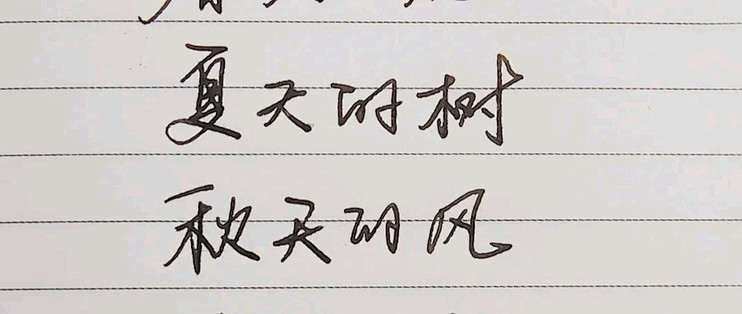 夏天的树
秋天的风